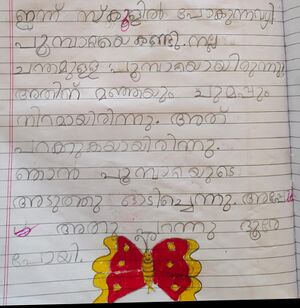 ഇന്ന് സ്കൂളിൽ പോകുന്നവഴി
പൂമ്പാറ്റയെ കണ്ടു. നല്ല
ചന്തമുള്ള പൂമ്പാറ്റയായിരുന്നു,
അതിന് മഞ്ഞയും ചുമപ്പും
നിറമായിരിന്നു. അത്
പറക്കുകയായിരിന്നു.
ഞാൻ പൂമ്പാറ്റയുടെ
അടുത്തു ഓടിച്ചെന്നു.
അതു പറന്നു ദൂരെ
പോയി.